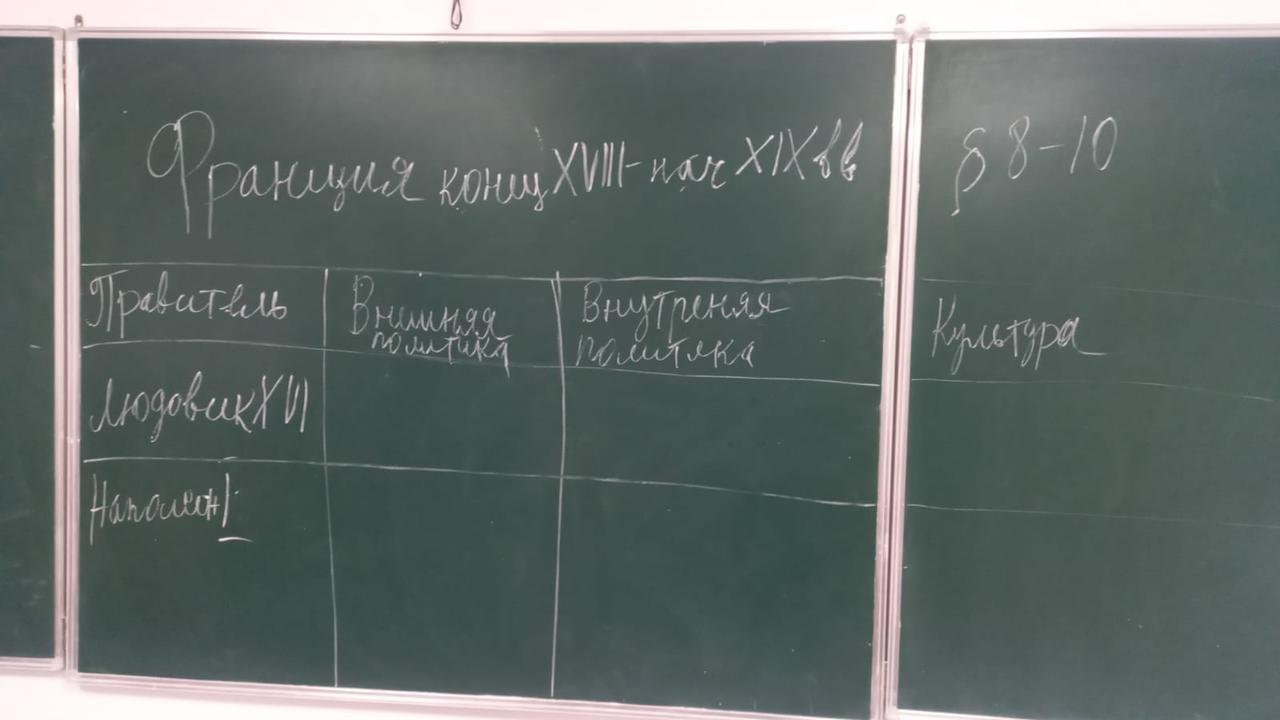 Франция конц XVIII-нач XIX вв
§ 8-10
Правитель
Внешняя
политика
Внутреняя
политика
Культура
Людовик XVI
Наполеон I